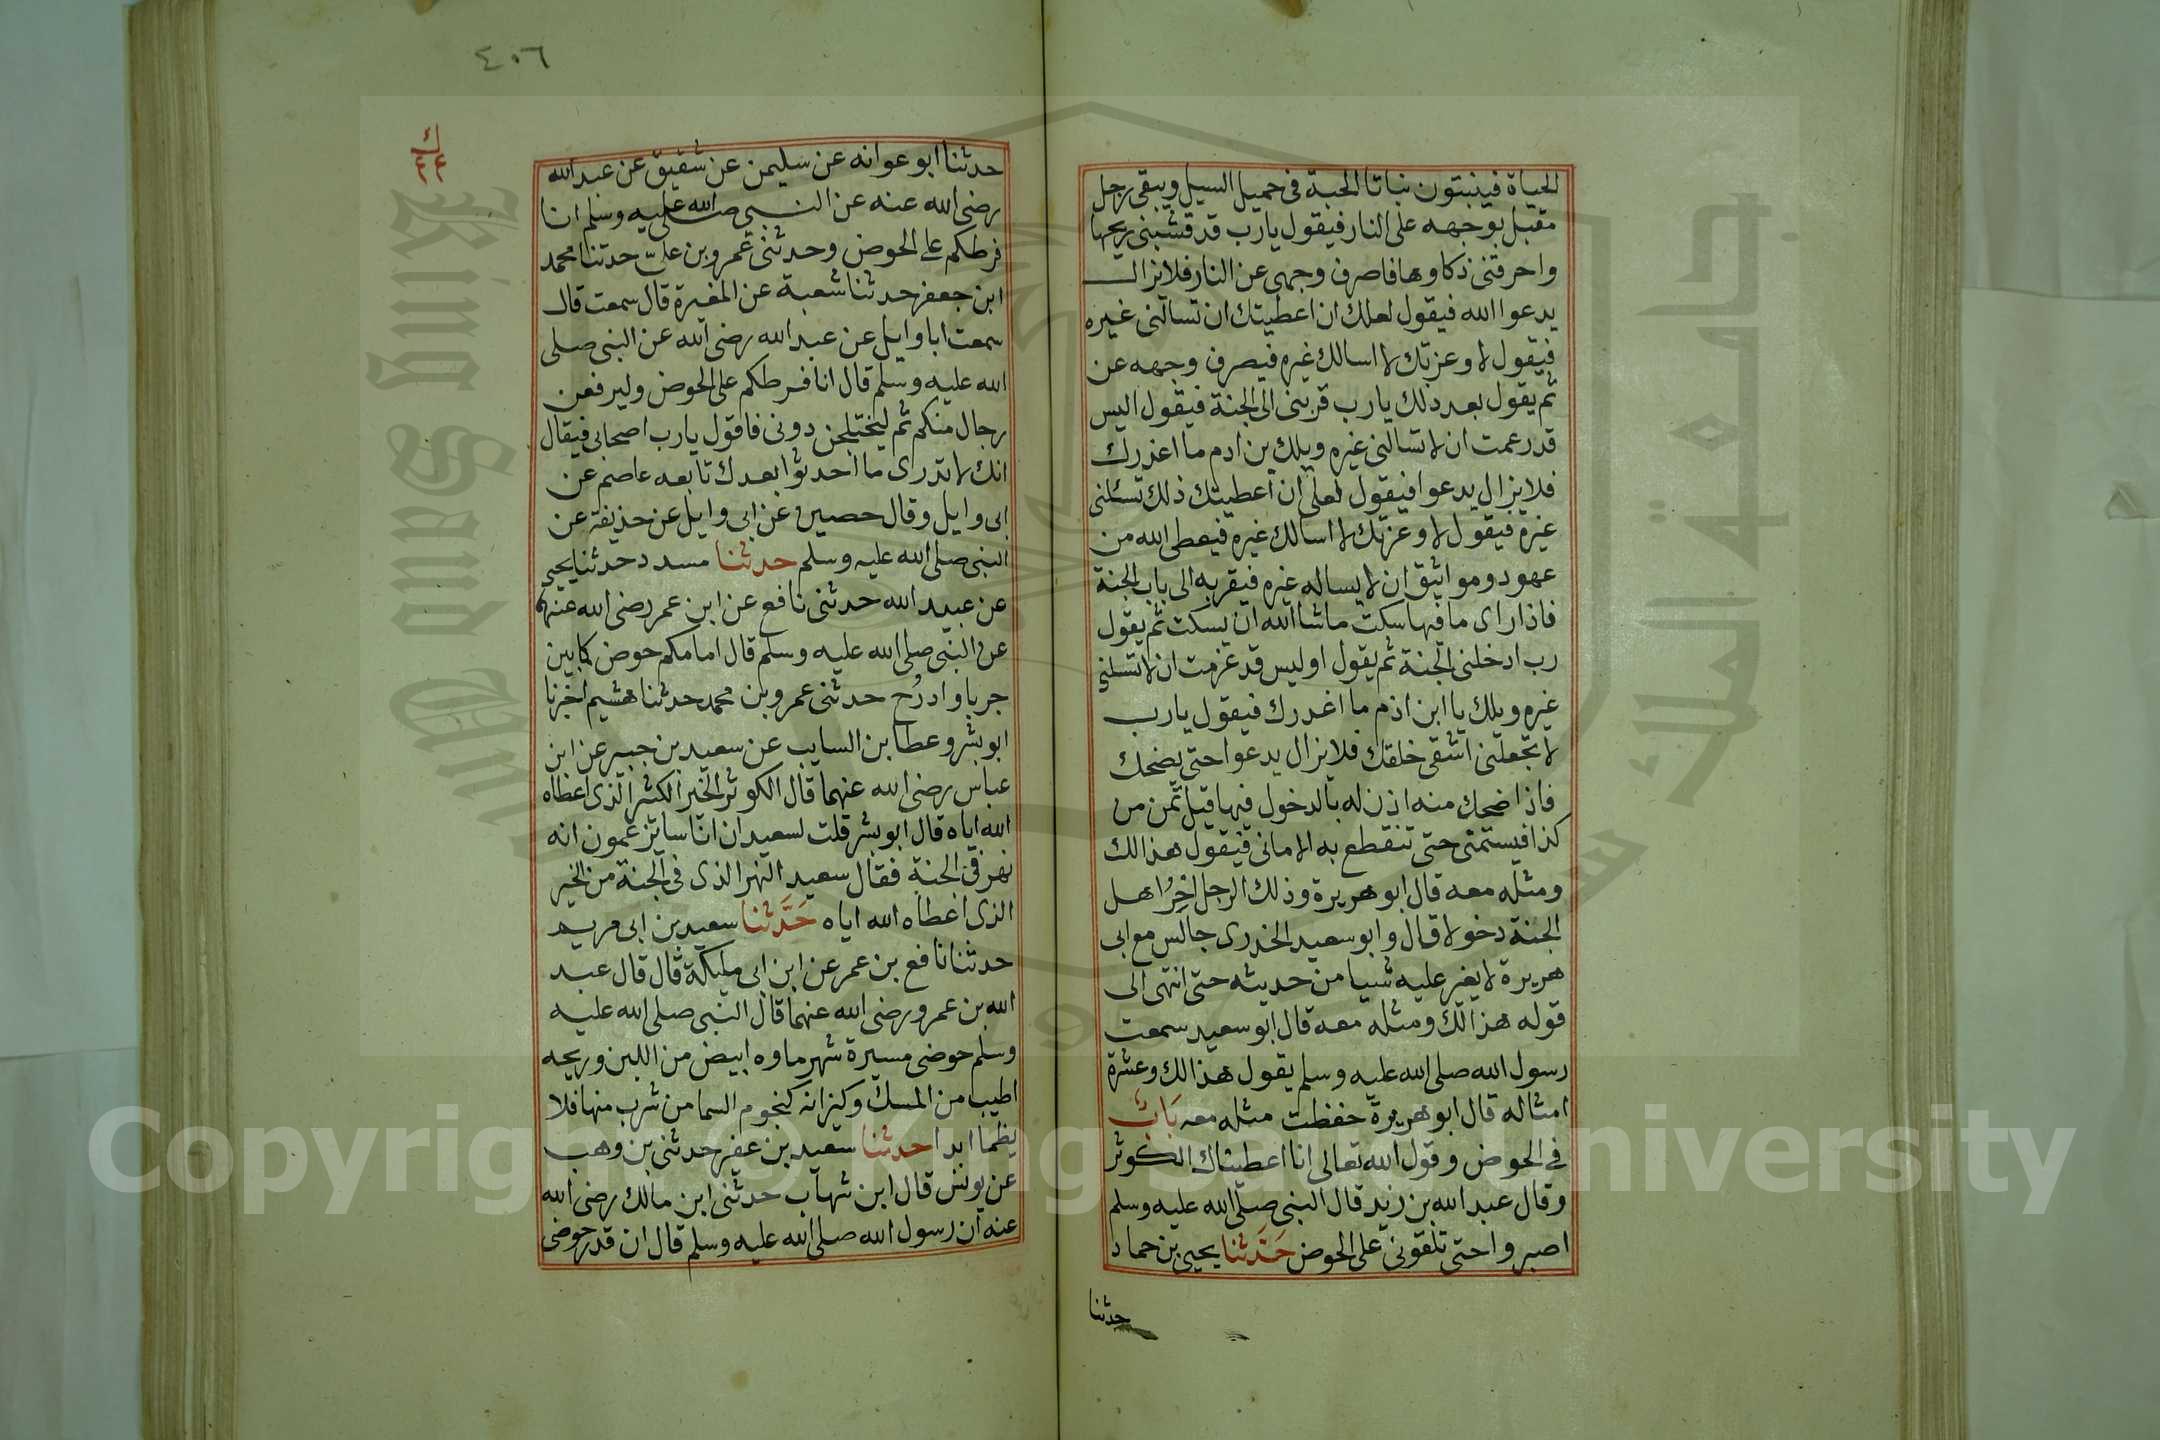 الحياة فينبتون نباتا الحبة في حميل السيل ويبقى رجل
مقبل بوجهه على النار فيقول يا رب قد قشبنى ريحها
واحرقنى ذكاوها فاصرف وجهى عن النار فلا يزال
يدعوا الله فيقول لعلك ان اعطيتك ان تسالنى غيره
فيقول لا وعزتك لا اسالك غيره فيصرف وجهه عن
ثم يقول بعد ذلك يا رب قربنى الى الجنة فيقول اليس
قد زعمت ان لا تسالنى غيره ويلك بن ادم ما اغدرك
فلا يزال يدعوا فيقول لعلى ان اعطيتك ذلك تسئلنى
غيره فيقول لا وعزتك لا اسالك غيره فيعطى الله من
عهود ومواثيق ان لا يساله غيره فيقربه الى باب الجنة
فاذا راى ما فيها سكت ما شا الله ان يسكت ثم يقول
رب ادخلنى الجنة ثم يقول اوليس قد عزمت ان لا تسلنى
غيره ويلك يا ابن ادم ما اغدرك فيقول يا رب
لا تجعلنى اشقى خلقك فلا يزال يدعوا حتى يضحك
فاذا ضحك منه اذن له بالدخول فيها قيل تمن من
كذا فيستمنى حتى تنقطع به الامانى فيقول هذا لك
ومثله معه قال ابو هريرة وذلك الرجل اخِرُ اهل
الجنة دخولا قال وابو سعيد الخدرى جالس مع ابى
هريرة لا يغير عليه شيا من حديثه حتى انتهى الى
قوله هذا لك ومثله معه قال ابو سعيد سمعت
رسول الله صلى الله عليه وسلم يقول هذا لك وعشرة
امثاله قال ابو هريرة حفظت مثله معه بَابٌ
في الحوض وقول الله تعالى انا اعطيناك الكوثر
وقال عبد الله بن زيد قال النبى صلى الله عليه وسلم
اصبروا حتى تلقونى على الحوض حَدَّثنا يحيى بن حماد
حدثنا
٤٠٦
ك
٣٣
حدثنا ابو عوانه عن سليمن عن شقيق عن عبد الله
رضى الله عنه عن النبى صلى الله عليه وسلم انا
فرطكم على الحوض وحدثنى عمرو بن على حدثنا محمد
ابن جعفر حدثنا شعبة عن المغيرة قال سمعت قال
سمعت ابا وايل عن عبد الله رضى الله عن النبى صلى
الله عليه وسلم قال انا فرطكم على الحوض وليرفعن
رجال منكم ثم ليختلجن دونى فاقول يا رب اصحابى فيقال
انك لا تدرى ما احدثوا بعدك تابعه عاصم عن
ابى وايل وقال حصين عن ابى وايل عن حذيفة عن
النبى صلى الله عليه وسلم حدثنا مسدد حدثنا يحيى
عن عبيد الله حدثنى نافع عن ابن عمر رضى الله عنهما
عن النبى صلى الله عليه وسلم قال امامكم حوض كما بين
جربا وادرُح حدثنى عمرو بن محمد حدثنا هشيم اخبرنا
ابو بشر وعطا بن السايب عن سعيد بن جبير عن ابن
عباس رضى الله عنهما قال الكوثر الخير الكثير الذى اعطاه
الله اياه قال ابو بشر قلت لسعيد ان اناسا يزعمون انه
نهر فى الجنة فقال سعيد النهر الذى فى الجنة من الخير
الذى اعطاه الله اياه حَدَّثنا سعيد بن ابى مريم
حدثنا نافع بن عمر عن ابن ابى مليكة قال قال عبد
الله بن عمرو رضى الله عنهما قال النبى صلى الله عليه
وسلم حوضى مسيرة شهر ماوه ابيض من اللبن وريحه
اطيب من المسك وكيزانه كنجوم السما من شرب منها فلا
يظما ابدا حدثنا سعيد بن عفير حدثنى بن وهب
عن يونس قال ابن شهاب حدثنى ابن مالك رضى الله
عنه ان رسول الله صلى الله عليه وسلم قال ان قدر حوضى
Copyright © King Saud University
King Saud University
جامعة الملك سعود